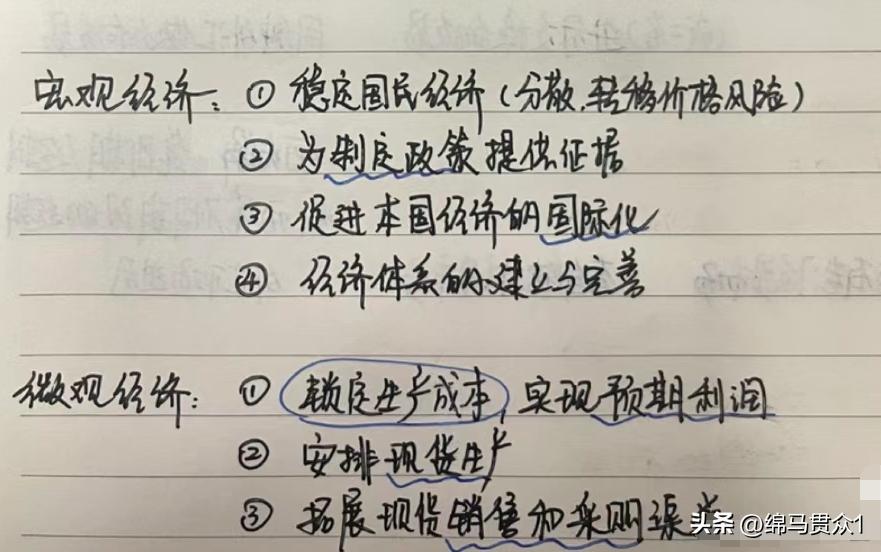 宏观经济：① 稳定国民经济（分散、转移价格风险）
② 为制定政策提供证据
③ 促进本国经济的国际化
④ 经济体系的建立与完善
微观经济：① 锁定生产成本，实现预期利润
② 安排现货生产
③ 拓展现货销售和采购渠道
头条 @绵马贯众1